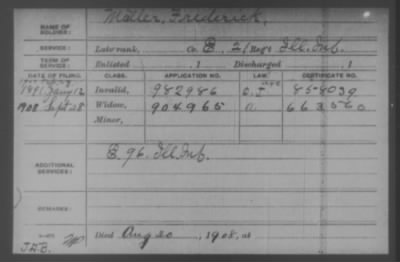 Moller, Frederick,
NAME OF SOLDIER:
SERVICE: Late rank, Co. E, 21 Reg't Ill. Inf.
TERM OF SERVICE: Enlisted , 1 Discharged , 1
DATE OF FILING. CLASS. APPLICATION NO. LAW. CERTIFICATE NO.
1891 Jany 12 Invalid, 982986 858039
1908 Sept 28 Widow, 904965 663560
Minor,
ADDITIONAL SERVICES: E. 96. Ill. Inf.
REMARKS:
Died Aug 20, 1908, at